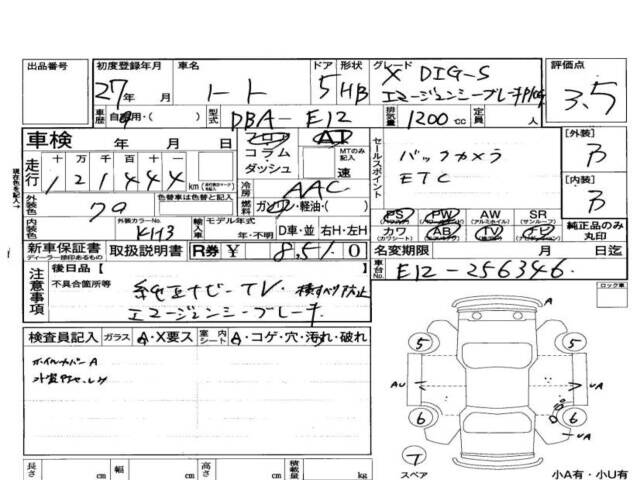 出品番号 初度登録年月 車名 ドア 形状 グレード 評価点
27年 月 ノート 5 HB X DIG-S
エマージェンシーブレーキPKG 3.5
車歴 自家用・( ) 型式 DBA-E12 排気量 1200cc 定員 人
車検 年 月 日 フロア AT
コラム・ダッシュ MTのみ記入 速
セールスポイント バックカメラ
ETC
[外装] B
[内装] B
現在色を記入→
走行 十 万 千 百 十 一
1 2 1 4 4 4 km
冷房 AAC
外装色 クロ 色替車は色替と記入 燃料 ガソリン・軽油・( )
内装色 外装カラーNo. KH3 輸入車 モデル年式 年・不明 D車・並 右H・左H
PS PW AW SR
(パワステ) (パワーウィンドウ) (アルミホイル) (サンルーフ)
カワ AB TV ナビ
(カワシート) (エアバッグ)
純正品のみ丸印
新車保証書 取扱説明書 R券 ¥ 8,510
ディーラー捺印あるもの
名変期限 月 日迄
車台No. E12-256346
注意事項 後日品【 】
不具合箇所等 純正ナビーTV・横すべり防止
エマージェンシーブレーキ
ロック車
検査員記入 ガラス A・X要ス 室内シート A・コゲ・穴・汚れ・破れ
ホイルカバーA
A
5 5
AU UA
6 6
UA
T
スペア
長さ cm 幅 cm 高さ cm 積載量 kg
小A有・小U有